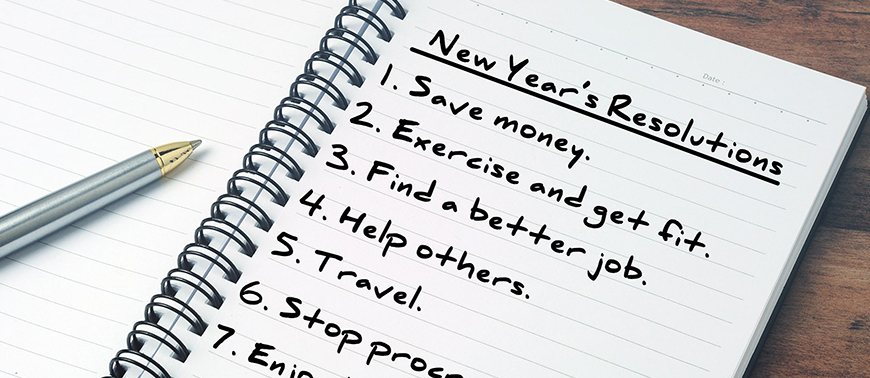 Date :
New Year's Resolutions
1. Save money.
2. Exercise and get fit.
3. Find a better job.
4. Help others.
5. Travel.
6. Stop
7.